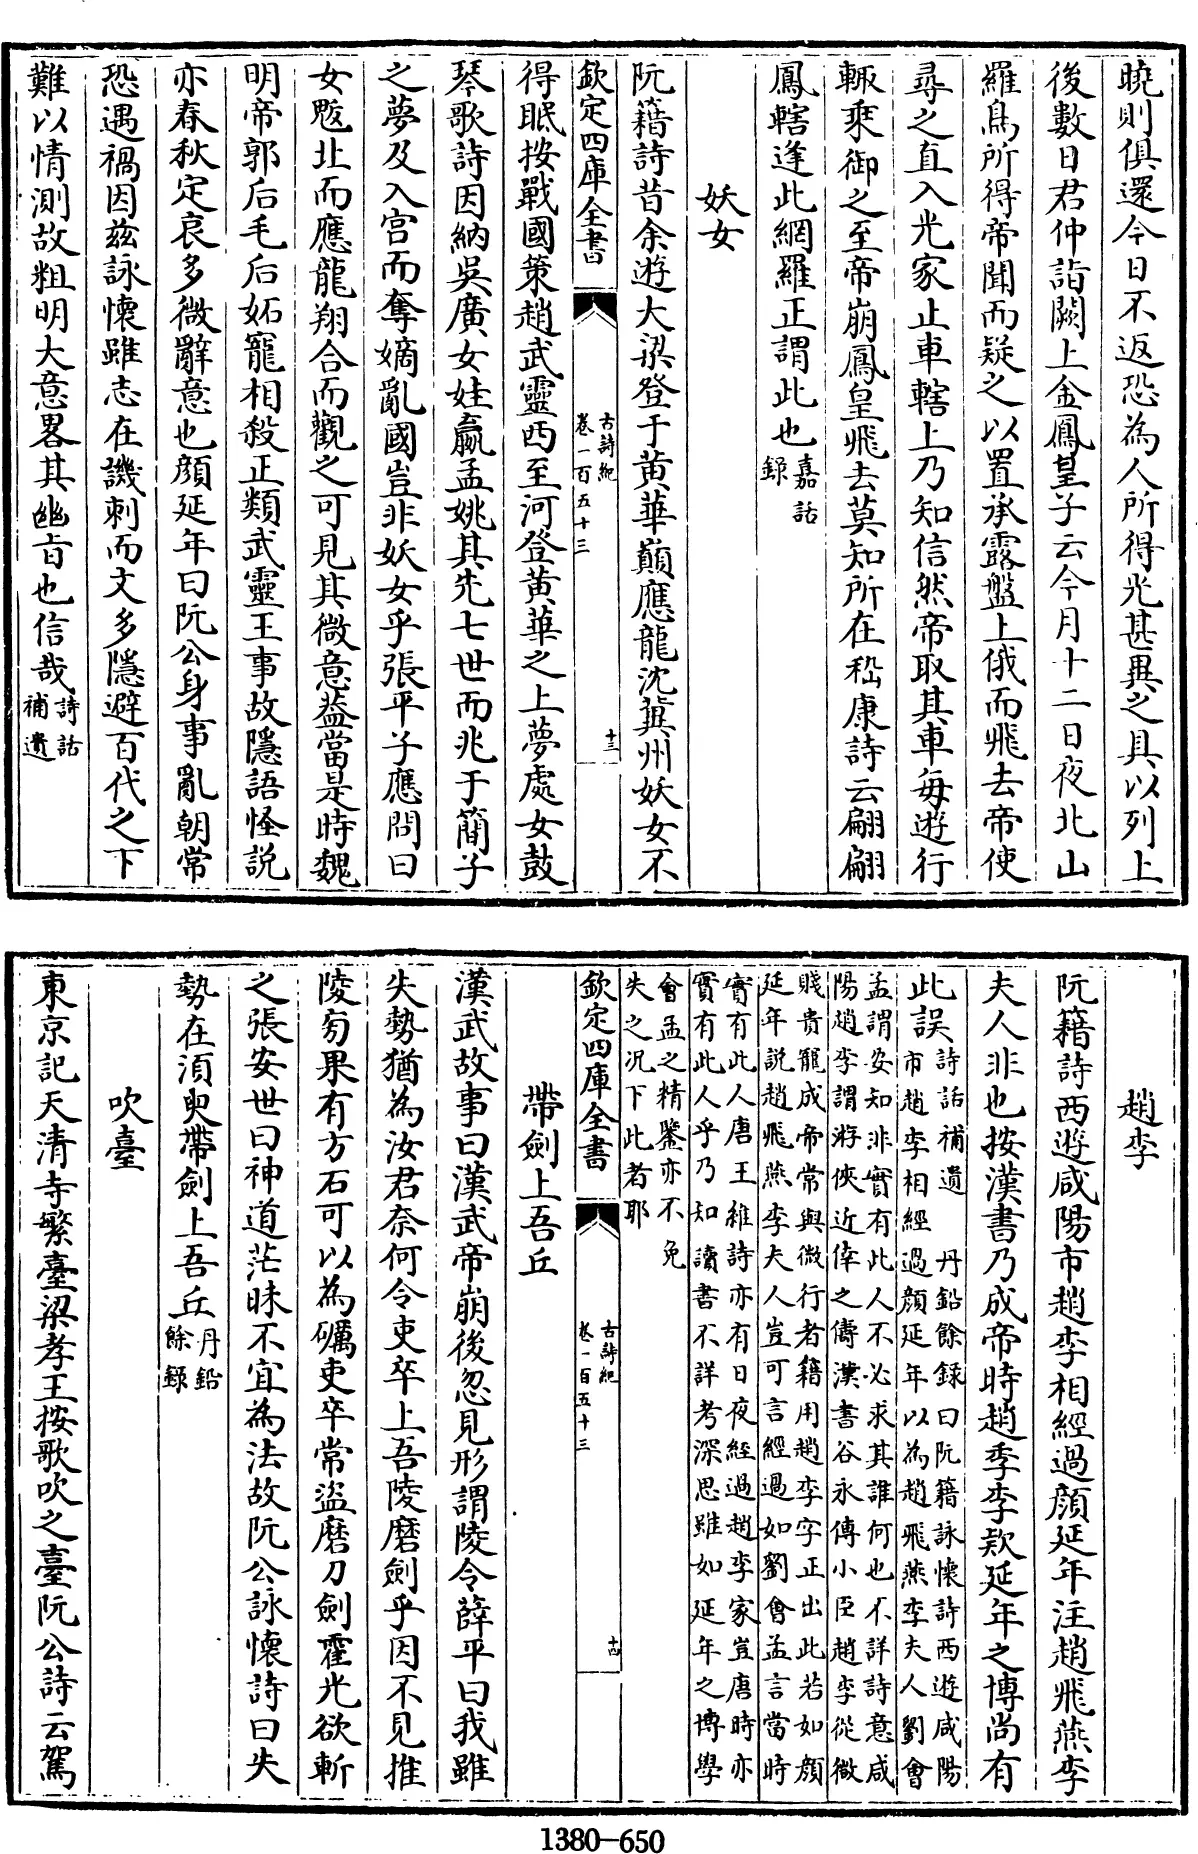 曉則俱還今日不返恐為人所得光甚異之具以列上
後數日君仲詣闕上金鳳皇子云今月十二日夜北山
羅鳥所得帝聞而疑之以置承露盤上俄而飛去帝使
尋之直入光家止車轄上乃知信然帝取其車每遊行
輙乘御之至帝崩鳳皇飛去莫知所在嵇康詩云翩翩
鳳轄逢此網羅正謂此也嘉話
錄
妖女
阮籍詩昔余遊大梁登于黄華巔應龍沈冀州妖女不
欽定四庫全書
古詩紀
卷一百五十三
十三
得眠按戰國策趙武靈西至河登黄華之上夢處女鼓
琴歌詩因納吳廣女娃嬴孟姚其先七世而兆于簡子
之夢及入宫而奪嫡亂國豈非妖女乎張平子應問曰
女魃北而應龍翔合而觀之可見其微意葢當是時魏
明帝郭后毛后妬寵相殺正類武靈王事故隱語怪説
亦春秋定哀多微辭意也顔延年曰阮公身事亂朝常
恐遇禍因兹詠懷雖志在譏刺而文多隱避百代之下
難以情測故粗明大意畧其幽㫖也信哉詩話
補遺
趙李
阮籍詩西遊咸陽市趙李相經過顔延年注趙飛燕李
夫人非也按漢書乃成帝時趙季李欵延年之博尚有
此誤詩話補遺　丹鉛餘録曰阮籍詠懷詩西遊咸陽
市趙李相經過顔延年以為趙飛燕李夫人劉會
孟謂安知非實有此人不必求其誰何也不詳詩意咸
陽趙李謂游俠近倖之儔漢書谷永傳小臣趙李從微
賤貴寵成帝常與微行者籍用趙李字正出此若如顔
延年説趙飛燕李夫人豈可言經過如劉會孟言當時
實有此人唐王維詩亦有日夜經過趙李家豈唐時亦
實有此人乎乃知讀書不詳考深思雖如延年之博學
會孟之精鑒亦不免
失之况下此者耶
欽定四庫全書
古詩紀
卷一百五十三
十四
帶劍上吾丘
漢武故事曰漢武帝崩後忽見形謂陵令薛平曰我雖
失勢猶為汝君奈何令吏卒上吾陵磨劍乎因不見推
陵旁果有方石可以為礪吏卒常盜磨刀劍霍光欲斬
之張安世曰神道茫昧不宜為法故阮公詠懷詩曰失
勢在須臾帶劍上吾丘丹鉛
餘録
吹臺
東京記天清寺繁臺梁孝王按歌吹之臺阮公詩云駕
1380—650